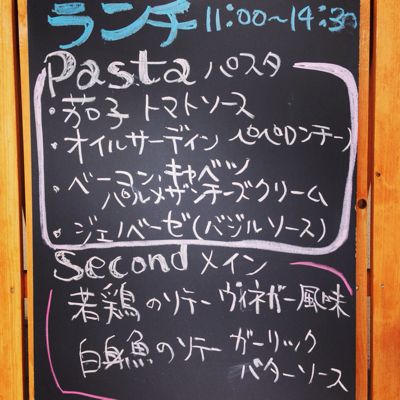 ランチ 11:00～14:30
Pasta パスタ
・茄子 トマトソース
・オイルサーディン ペペロンチーノ
・ベーコン、キャベツ
パルメザンチーズクリーム
・ジェノベーゼ(バジルソース)
Second メイン
若鶏のソテー ヴィネガー風味
白身魚のソテー ガーリック
バターソース